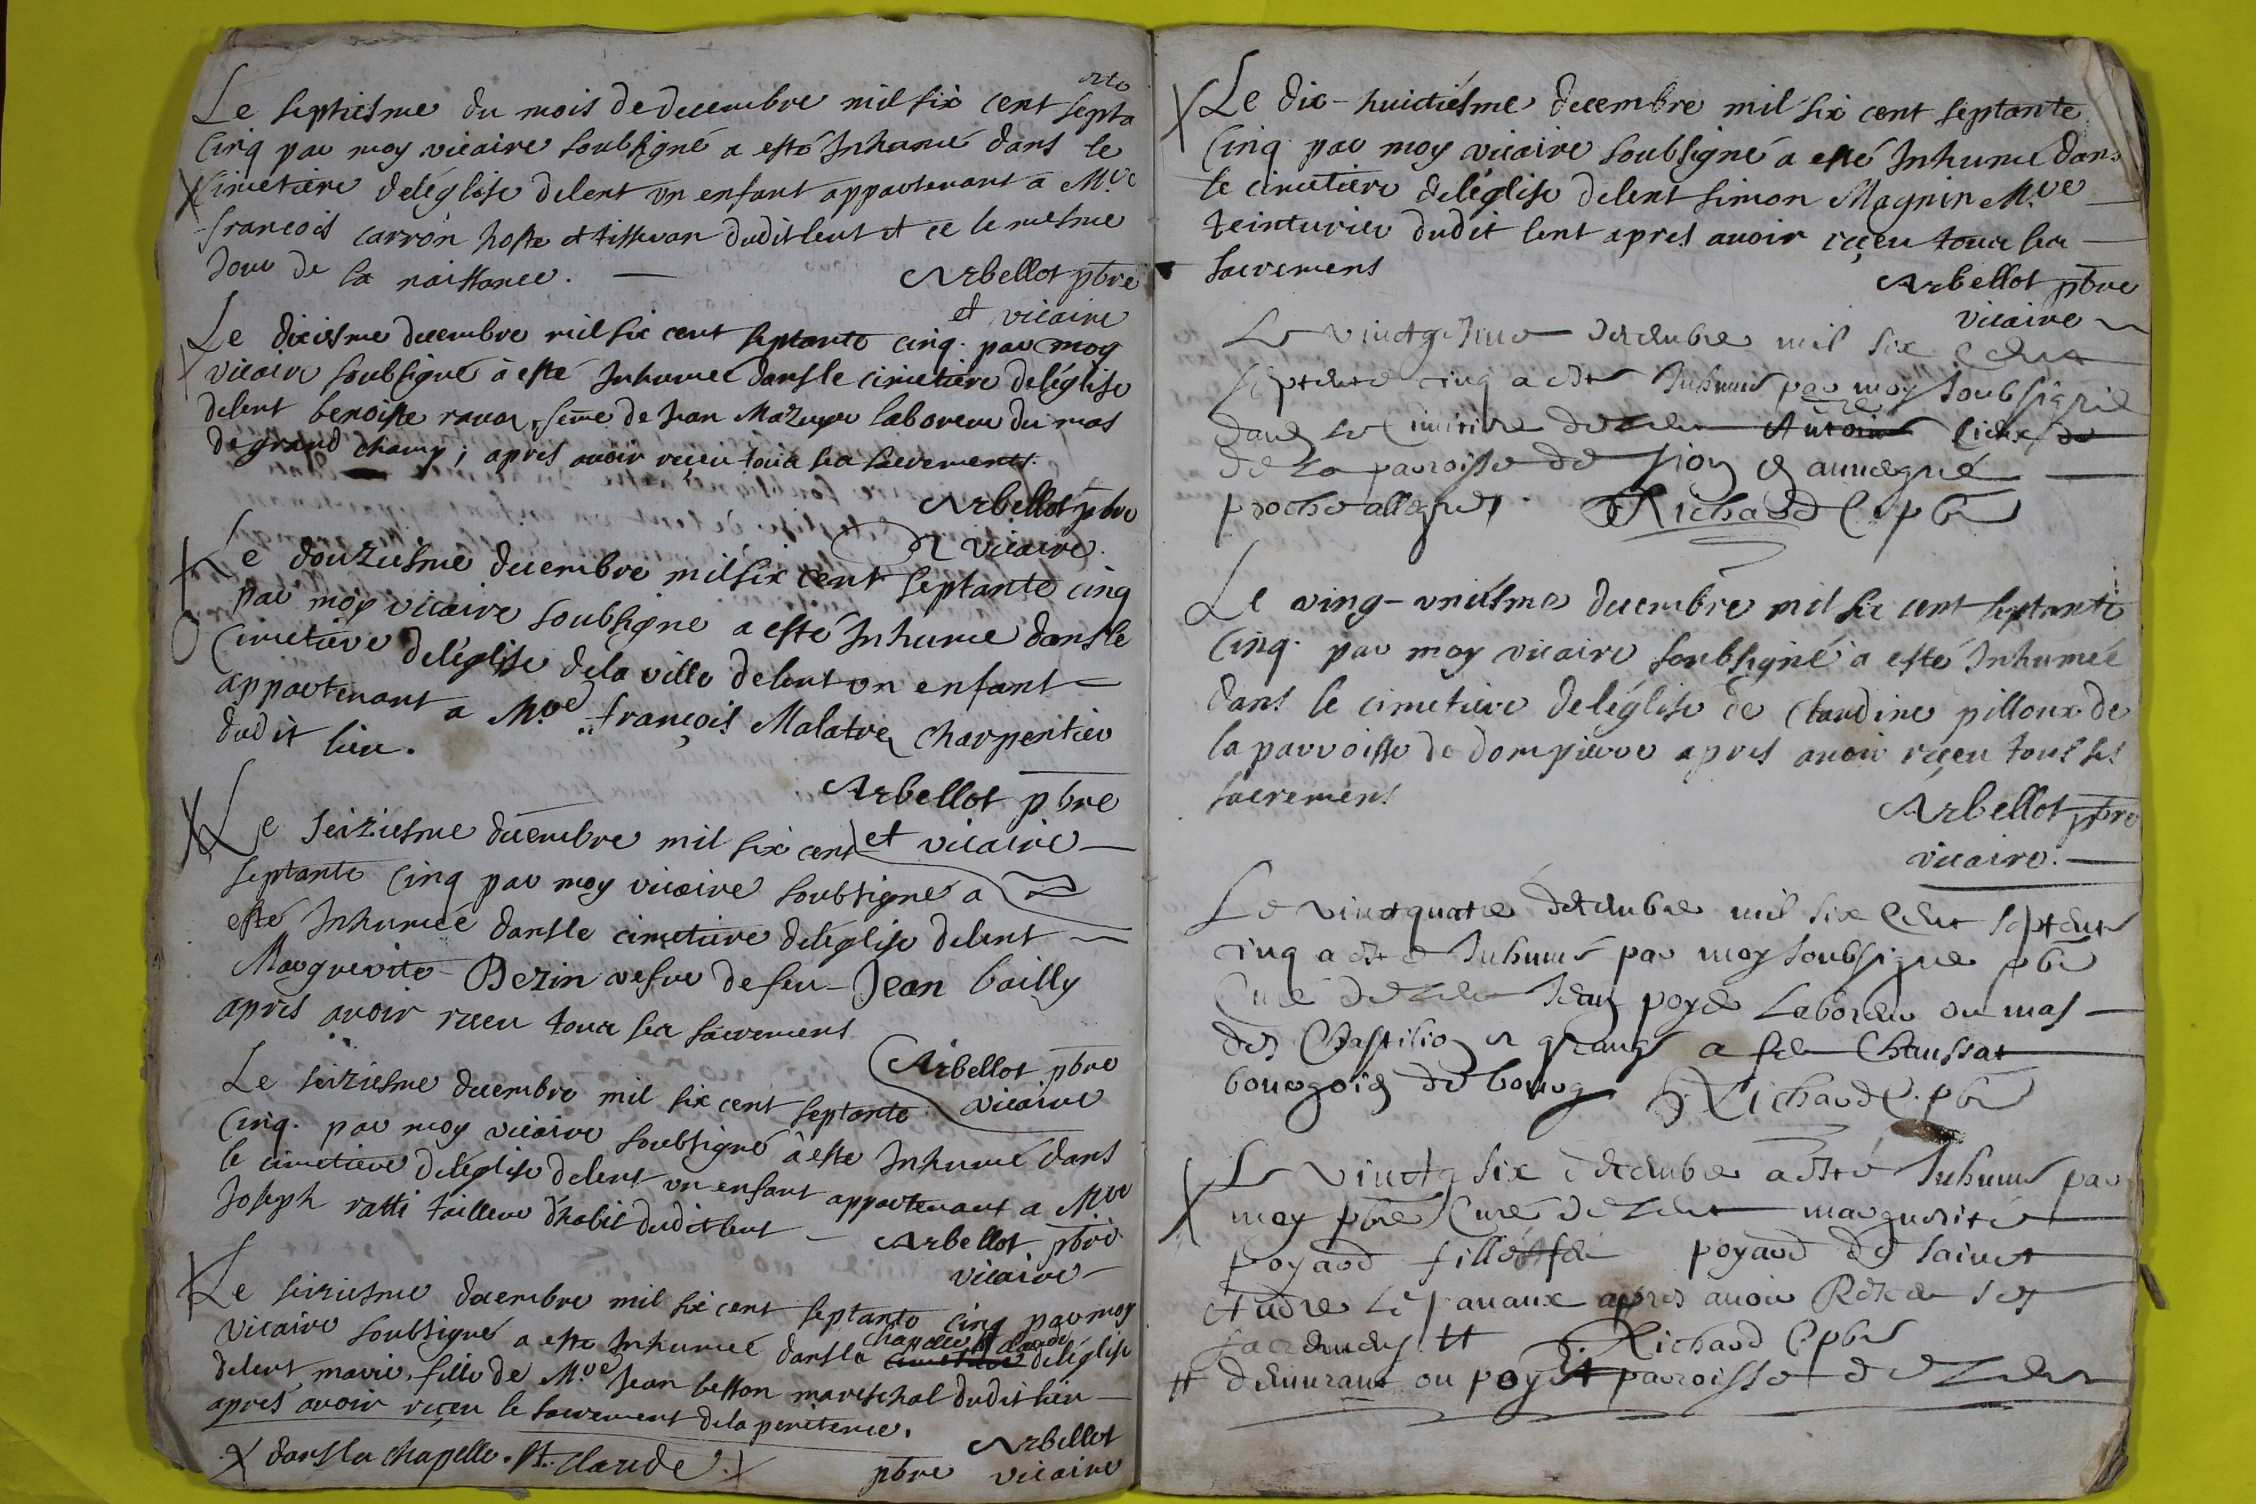 Le septiesme du mois de decembre mil six cent septante
cinq par moy vicaire soubsigné a esté Inhumé dans le
cimetiere deléglise delent un enfant appartenant a M.re
françois carron hoste et tisseran dudit lent et ce le mesme
Jour de sa naissance.
Arbellot pbre
et vicaire
Le dixiesme decembre mil six cent septante cinq. par moy
vicaire soubsigné à esté Inhumé dans le cimetiere deléglise
delent benoiste femme de Jean Mazuyer laboreur du mas
de grand champ; apres avoir reçeu tous ses sacrements.
Arbellot pbre
et vicaire.
Le douziesme decembre mil six cent septante cinq
par moy vicaire soubsigne a esté Inhume dans le
Cimetiere deléglise dela ville delent un enfant
appartenant a M.re françois Malatre charpentier
dudit lieu.
Arbellot pbre
et vicaire
Le seiziesme decembre mil six cent
septante cinq par moy vicaire soubsigné a
esté Inhumée dans le cimetiere deléglise delent
Marguerite Bezin vesve de feu Jean bailly
apres avoir reçeu tous ses sacrements
Arbellot pbre
vicaire
Le seiziesme decembre mil six cent septante
Cinq. par moy vicaire soubsigné à esté Inhumé dans
le cimetiere deléglise delent un enfant appartenant a M.re
Joseph ratti tailleur d'habit dudit lent
Arbellot pbre
vicaire
Le seiziesme decembre mil six cent septante cinq par moy
vicaire soubsigné a esté Inhumeé dans le cimetiere deléglise
chapelle st claude
delent marie, fille de M.re Jean besson mareschal dudit lieu
apres avoir reçeu le sacrement dela penitence.
X dans la chapelle. St. claude. X
Arbellot
pbre vicaire
Le dix-huictiésme decembre mil six cent septante
Cinq par moy vicaire soubsigné a esté Inhumé dans
le cimetiere deléglise delent simon Magnin M.re
teinturier dudit lent apres avoir reçeu tous ses
sacremens
Arbellot pbre
vicaire
Le decembre mil six Cent
septente cinq a esté Inhumé par moy soubsigné
dans le Cimitire de Lent Antoine
de la parroisse de en auvergne
proche
Richard C. pbre
Le ving-uniésme decembre mil six cent septante
Cinq. par moy vicaire soubsigné a esté Inhumée
dans le cimetiere deléglise de Claudine pilloux de
la parroisse de dompierre apres avoir reçeu tous ses
sacremens
Arbellot pbre
vicaire.
Le vinctquatre decembre mil six Cent septente
cinq a esté Inhumé par moy soubsigne pbre
Curé de Lent Jean poyde Laboreur du mas
des Chastilion et granger a feu Chaussat
bourgois de bourg
Richard C. pbre
Le vinctg six decembre a esté Inhumé par
moy pbre Curé de Lent marguerite
poyard fille feu poyard de sainct
Andre le panaux apres avoir Receu ses
sacremens #
Richard C pbre
# demurant ou poyet parroisse de Lent